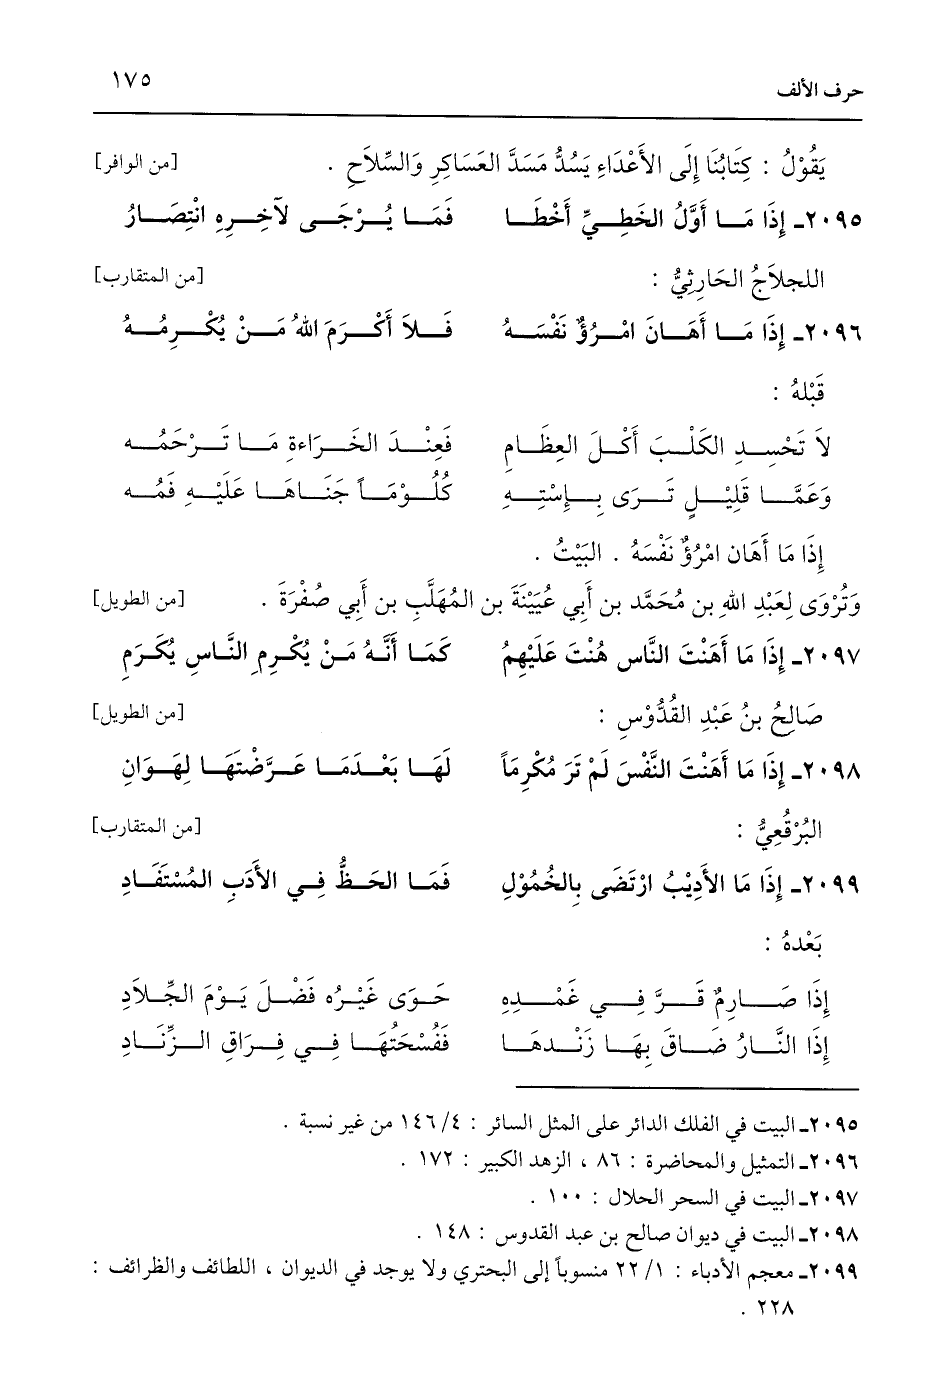 حرف الألف ١٧٥
يَقُوْلُ : كِتَابُنَا إِلَى الأَعْدَاءِ يَسُدُّ مَسَدَّ العَسَاكِرِ وَالسِّلاَحِ . [من الوافر]
٢٠٩٥ـ إِذَا مَـا أَوَّلُ الخَطِـيِّ أَخْطَـا فَمَـا يُـرْجَـى لآخِـرِهِ انْتِصَـارُ
اللجلاَجُ الحَارِثِيُّ : [من المتقارب]
٢٠٩٦ـ إِذَا مَـا أَهَـانَ امْـرُؤٌ نَفْسَـهُ فَـلاَ أَكْـرَمَ اللهُ مَـنْ يُكْـرِمُـهُ
قَبْلهُ :
لاَ تَحْسِـدِ الكَلْـبَ أَكْـلَ العِظَـامِ فَعِنْـدَ الخَـرَاءةِ مَـا تَـرْحَمُـه
وَعَمَّـا قَلِيْـلٍ تَـرَى بِـإِسْتِـهِ كُلُـوْمَـاً جَنَـاهَـا عَلَيْـهِ فَمُـه
إِذَا مَا أَهَان امْرُؤٌ نَفْسَهُ . البَيْتُ .
وَتُرْوَى لِعَبْدِ اللهِ بن مُحَمَّد بن أَبي عُيَيْنَةَ بن المُهَلَّبِ بن أَبي صُفْرَةَ . [من الطويل]
٢٠٩٧ـ إِذَا مَا أَهَنْتَ النَّاسِ هُنْتَ عَلَيْهِمُ كَمَـا أَنَّـهُ مَـنْ يُكْـرِمِ النَّـاسِ يُكَـرَمِ
صَالِحُ بنُ عَبْدِ القُدُّوْسِ : [من الطويل]
٢٠٩٨ـ إِذَا مَا أَهَنْتَ النَّفْسَ لَمْ تَرَ مُكْرِمَاً لَهَـا بَعْـدَمَـا عَـرَّضْتَهَـا لِهَـوَانِ
البُرْقُعِيُّ : [من المتقارب]
٢٠٩٩ـ إِذَا مَا الأَدِيْبُ ارْتَضَى بِالخُمُوْلِ فَمَـا الحَـظُّ فِـي الأَدَبِ المُسْتَفَـادِ
بَعْدهُ :
إِذَا صَـارِمٌ قَـرَّ فِـي غَمْـدِهِ حَـوَى غَيْـرُه فَضْـلَ يَـوْمَ الجِّـلاَدِ
إِذَا النَّـارُ ضَـاقَ بِهَـا زَنْـدهَـا فَفُسْحَتُهَـا فِـي فِـرَاقِ الـزِّنَـادِ
٢٠٩٥ـ البيت في الفلك الدائر على المثل السائر : ٤/ ١٤٦ من غير نسبة .
٢٠٩٦ـ التمثيل والمحاضرة : ٨٦ ، الزهد الكبير : ١٧٢ .
٢٠٩٧ـ البيت في السحر الحلال : ١٠٠ .
٢٠٩٨ـ البيت في ديوان صالح بن عبد القدوس : ١٤٨ .
٢٠٩٩ـ معجم الأدباء : ١/ ٢٢ منسوباً إلى البحتري ولا يوجد في الديوان ، اللطائف والظرائف :
٢٢٨ .